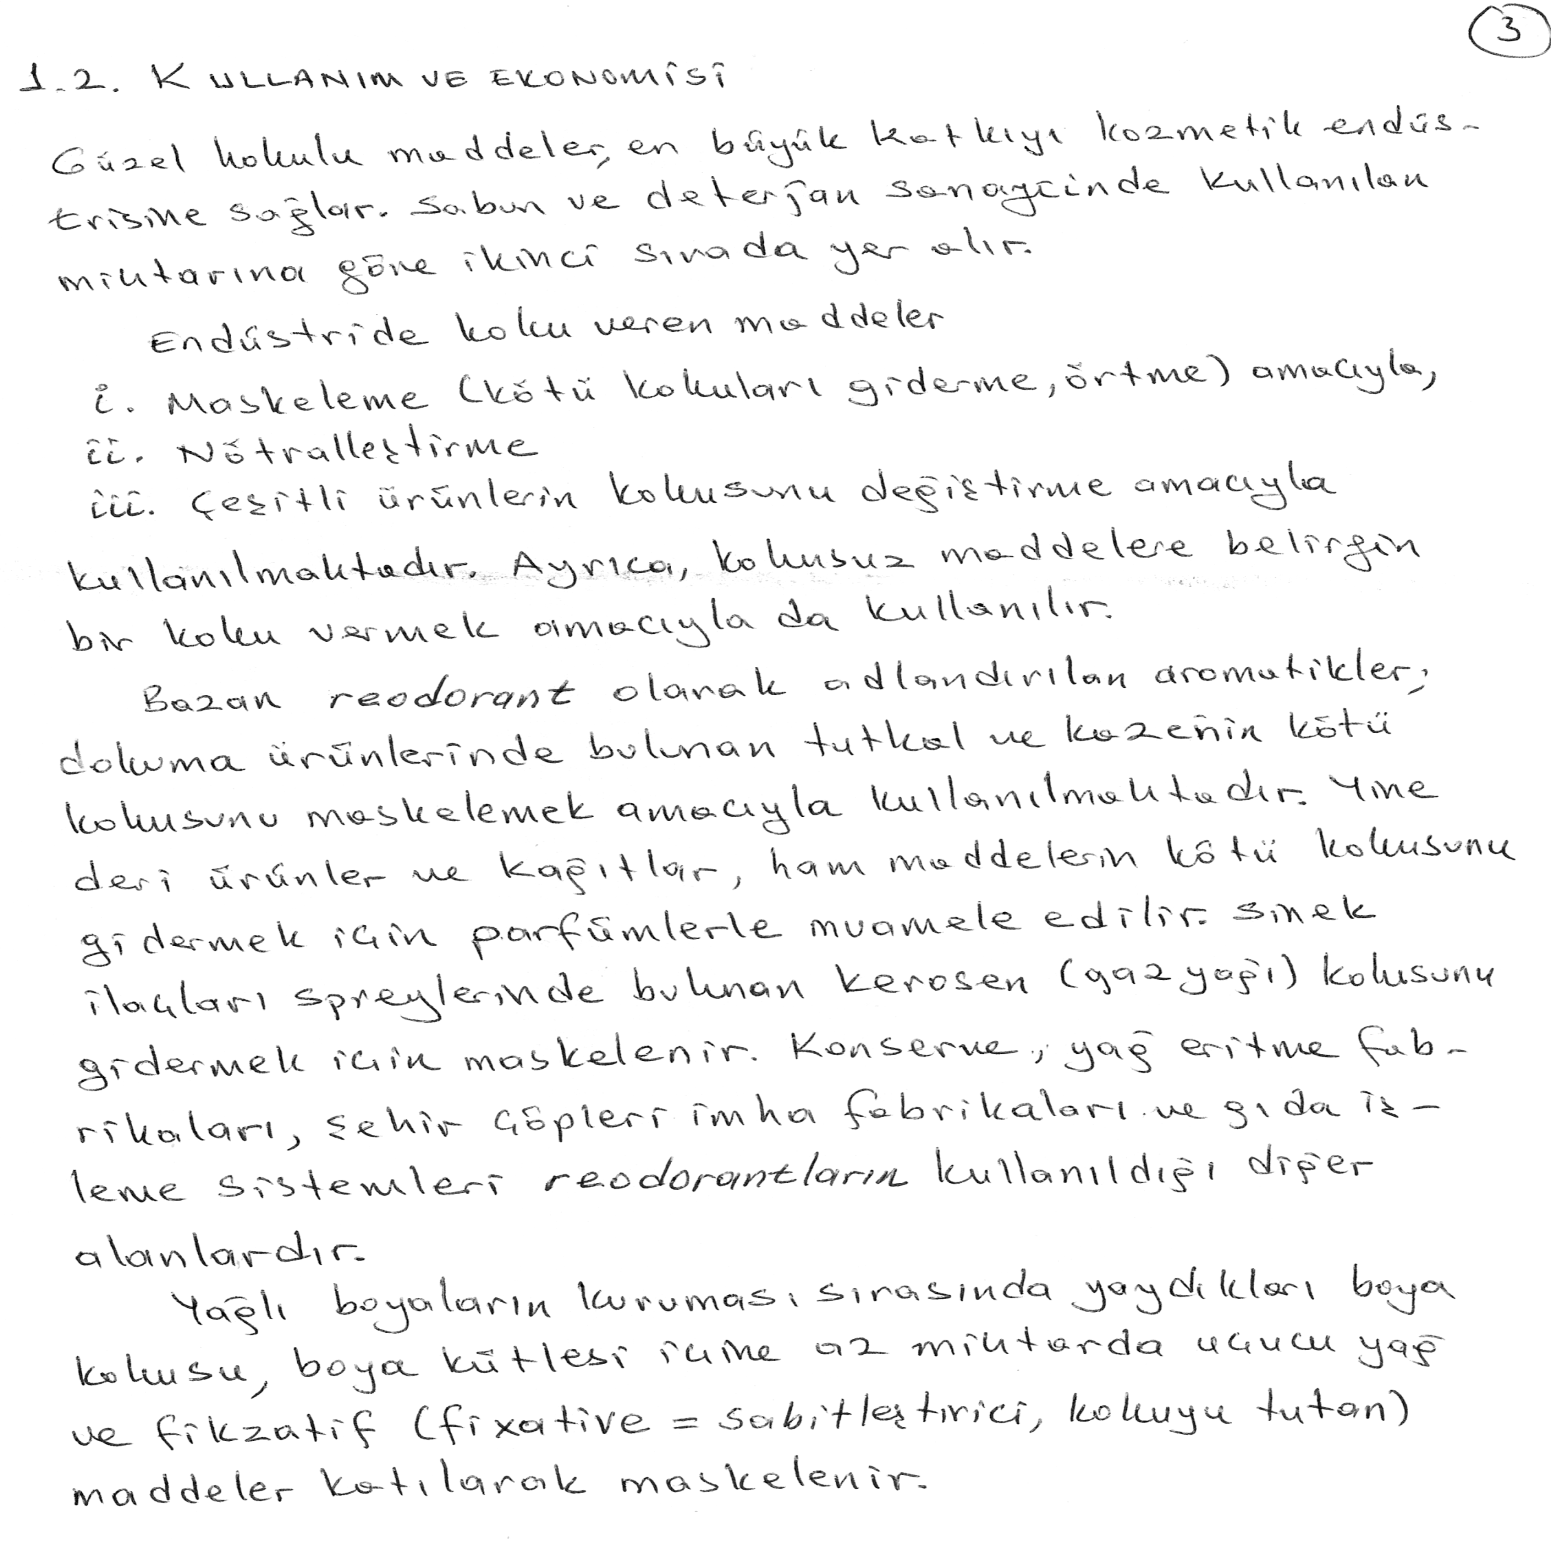 3
1.2. KULLANIM VE EKONOMİSİ
Güzel kokulu maddeler, en büyük katkıyı kozmetik endüs-
trisine sağlar. Sabun ve deterjan sanayiinde kullanılan
miktarına göre ikinci sırada yer alır.
Endüstride koku veren maddeler
i. Maskeleme (kötü kokuları giderme, örtme) amacıyla,
ii. Nötralleştirme
iii. Çeşitli ürünlerin kokusunu değiştirme amacıyla
kullanılmaktadır. Ayrıca, kokusuz maddelere belirgin
bir koku vermek amacıyla da kullanılır.
Bazan reodorant olarak adlandırılan aromatikler;
dokuma ürünlerinde bulunan tutkal ve kazeinin kötü
kokusunu maskelemek amacıyla kullanılmaktadır. Yine
deri ürünler ve kağıtlar, ham maddelerin kötü kokusunu
gidermek için parfümlerle muamele edilir. Sinek
ilaçları spreylerinde bulunan kerosen (gazyağı) kokusunu
gidermek için maskelenir. Konserve, yağ eritme fab-
rikaları, şehir çöpleri imha fabrikaları ve gıda iş-
leme sistemleri reodorantların kullanıldığı diğer
alanlardır.
Yağlı boyaların kuruması sırasında yaydıkları boya
kokusu, boya kütlesi içine az miktarda uçucu yağ
ve fikzatif (fixative = sabitleştirici, kokuyu tutan)
maddeler katılarak maskelenir.